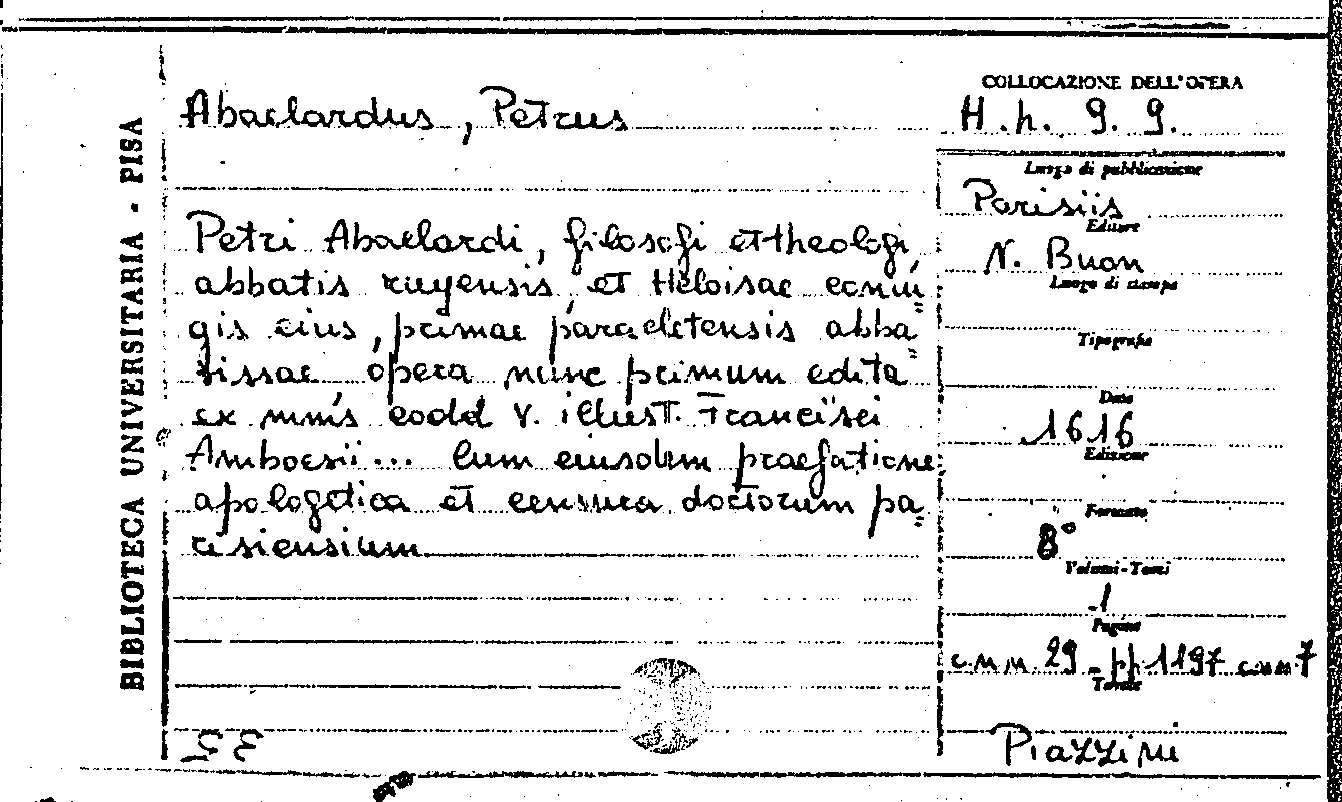 BIBLIOTECA UNIVERSITARIA - PISA
Abaelardus, Petrus
Petri Abaelardi, filosofi et theologi,
abbatis ruyensis, et Heloisae coniu=
gis eius, primae paracletensis abba=
tissae, opera nunc primum edita
ex mmis codd v. illust. Francisci
Amboesii... Cum eiusdem praefatione
apologetica et censura doctorum pa=
risiensium
COLLOCAZIONE DELL'OPERA
H.h. 9. 9.
Luogo di pubblicazione
Parisiis
Editore
N. Buon
Luogo di stampa
Tipografia
Data
1616
Edizione
Formato
8°
Volumi-Tomi
1
Pagine
c.n.n. 29 - pp 1197 c.nn 7
Tavole
Piazzini